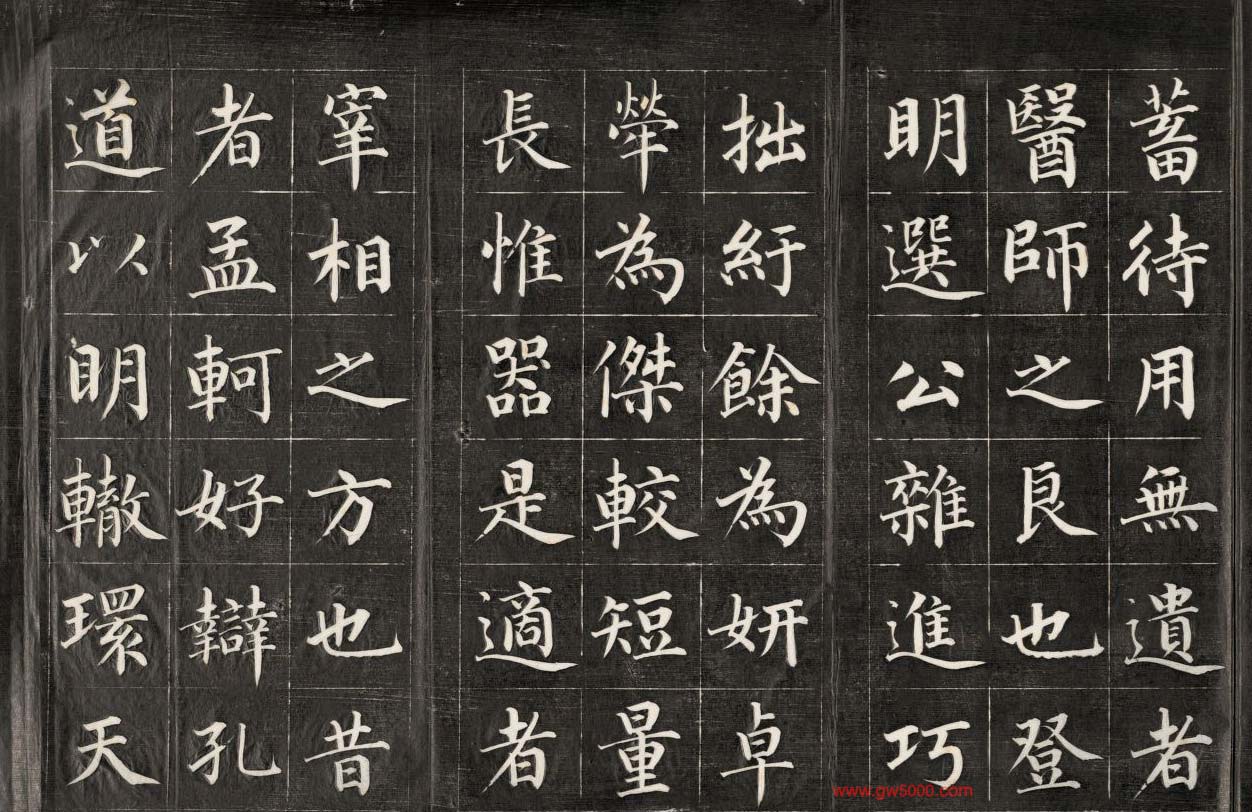 蓄待用無遺者
醫師之良也登
眀選公雜進巧
拙紆餘為妍卓
犖為傑較短量
長惟器是適者
宰相之方也昔
者孟軻好辯孔
道以眀轍環天
www.gw5000.com